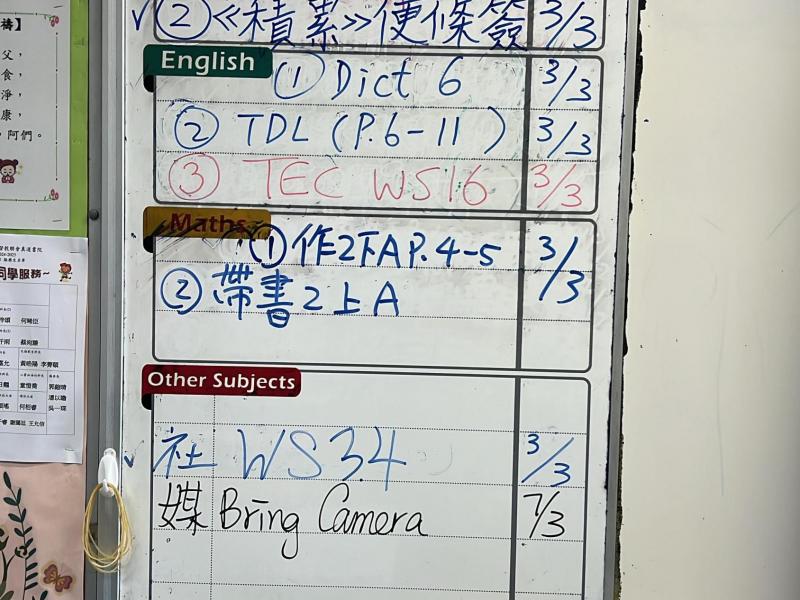 禱】
父，
食，
淨，
康，
，阿們。
同學服務~
✓ ② 《積累》便條簽 3/3
English
① Dict 6 3/3
② TDL (P.6-11 ) 3/3
③ TEC WS16 3/3
Maths
① 作2下A P.4-5 3/3
② 帶書2上A
Other Subjects
✓ 社 WS 3.4 3/3
媒 Bring Camera 7/3